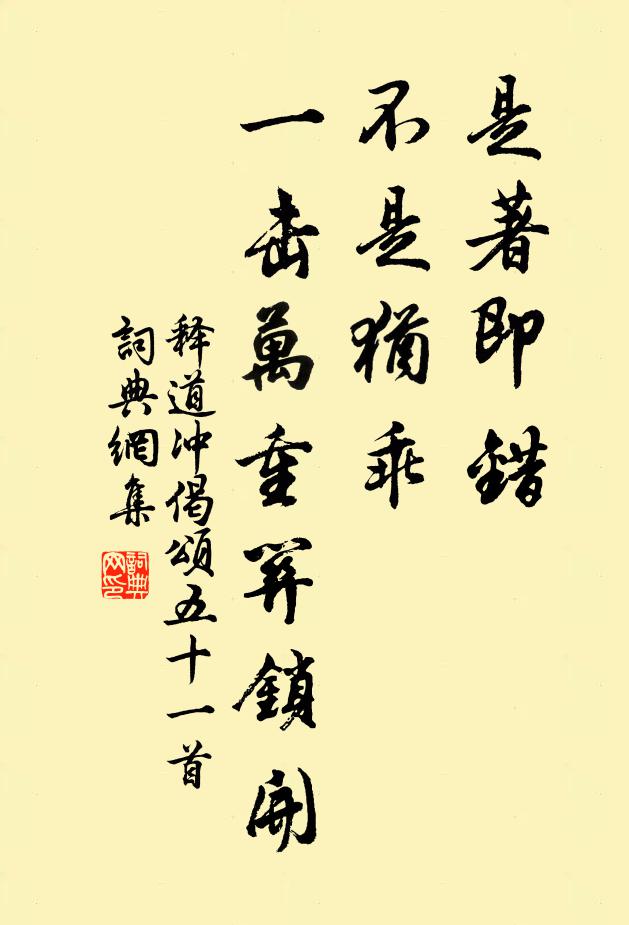 是著即錯
不是猶乖
一击萬重關鎖開
释道冲偈頌五十一首
詞典網集
詞典網印